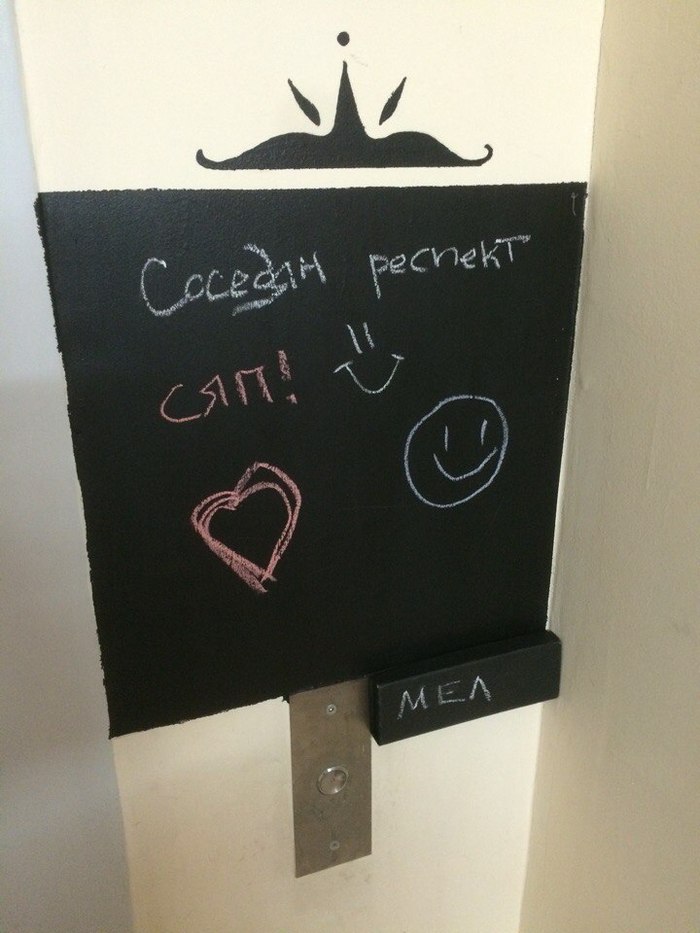 Соседям респект
сяп!
МЕЛ